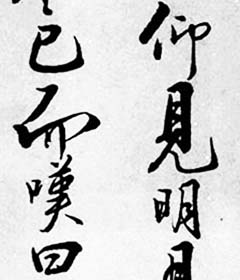 仰見明月
已而嘆曰